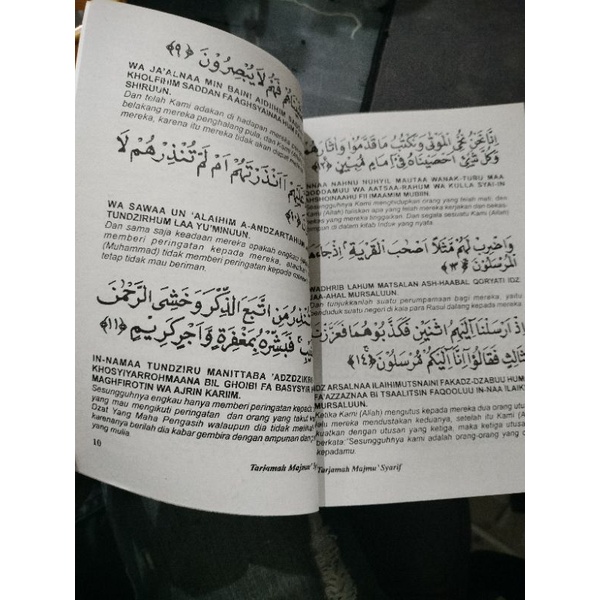 فَهُمْ لَا يُبْصِرُوْنَ ﴿٩﴾
WA JA'ALNAA MIN BAINI AIDIIHIM
KHOLFIHIM SADDAN FA AGHSYAINAA HUM
SHIRUUN.
Dan telah Kami adakan di hadapan mereka
belakang mereka penghalang pula, dan Kami
mereka, karena itu mereka tidak akan dapat
عَلَيْهِمْ ءَاَنْذَرْتَهُمْ اَمْ لَمْ تُنْذِرْهُمْ لَا
WA SAWAA UN 'ALAIHIM A-ANDZARTAHUM
TUNDZIRHUM LAA YU'MINUUN.
Dan sama saja keadaan mereka apakah engkau
memberi peringatan kepada mereka, ataukah
(Muhammad) tidak memberi peringatan kepada
tetap tidak mau beriman.
تُنْذِرُ مَنِ اتَّبَعَ الذِّكْرَ وَخَشِيَ الرَّحْمٰنَ
فَبَشِّرْهُ بِمَغْفِرَةٍ وَاَجْرٍ كَرِيْمٍ ﴿١١﴾
IN-NAMAA TUNDZIRU MANITTABA 'ADZDZIKRA
KHOSYIYARROHMAANA BIL GHOIBI FA BASYSYIR
MAGHFIROTIN WA AJRIN KARIIM.
Sesungguhnya engkau hanya memberi peringatan kepada
yang mau mengikuti peringatan dan orang yang takut
Dzat Yang Maha Pengasih walaupun dia tidak
karenanya berilah dia kabar gembira dengan ampunan dan
yang mulia.
10
Tarjamah Majmu'
اِنَّا نَحْنُ نُحْيِ الْمَوْتٰى وَنَكْتُبُ مَا قَدَّمُوْا وَاٰثَارَهُمْ
وَكُلَّ شَيْءٍ اَحْصَيْنَاهُ فِيْ اِمَامٍ مُبِيْنٍ ﴿١٢﴾
NAHNU NUHYIL MAUTAA WANAK-TUBU MAA
QODDAMUU WA AATSAA-RAHUM WA KULLA SYAI-IN
FII IMAAMIM MUBIIN.
Sesungguhnya Kami menghidupkan orang yang telah mati, dan
(Allah) tuliskan apa yang telah mereka kerjakan dan bekas-
yang mereka tinggalkan. Dan segala sesuatu Kami (Allah)
kumpulkan di dalam kitab Induk yang nyata.
وَاضْرِبْ لَهُمْ مَثَلًا اَصْحٰبَ الْقَرْيَةِ اِذْ جَاءَهَا
الْمُرْسَلُوْنَ ﴿١٣﴾
WADHRIB LAHUM MATSALAN ASH-HAABAL QORYATI IDZ
JAA-AHAL MURSALUUN.
Dan tunjukkanlah suatu perumpamaan bagi mereka, yaitu
penduduk suatu negeri di kala para Rasul datang kepada mereka.
اِذْ اَرْسَلْنَا اِلَيْهِمُ اثْنَيْنِ فَكَذَّبُوْهُمَا فَعَزَّزْنَا
بِثَالِثٍ فَقَالُوْا اِنَّا اِلَيْكُمْ مُرْسَلُوْنَ ﴿١٤﴾
IDZ ARSALNAA ILAIHIMUTSNAINI FAKADZ-DZABUU HUM
FA'AZZAZNAA BI TSAALITSIN FAQOOLUU IN-NAA ILAIK
MURSALUUN.
Ketika Kami (Allah) mengutus kepada mereka dua orang
mereka mendustakan keduanya, setelah itu, Kami (Allah)
dengan utusan yang ketiga, maka ketiga utusan
berkata:"Sesungguhnya kami adalah orang-orang yang
kepadamu.
Tarjamah Majmu' Syarif